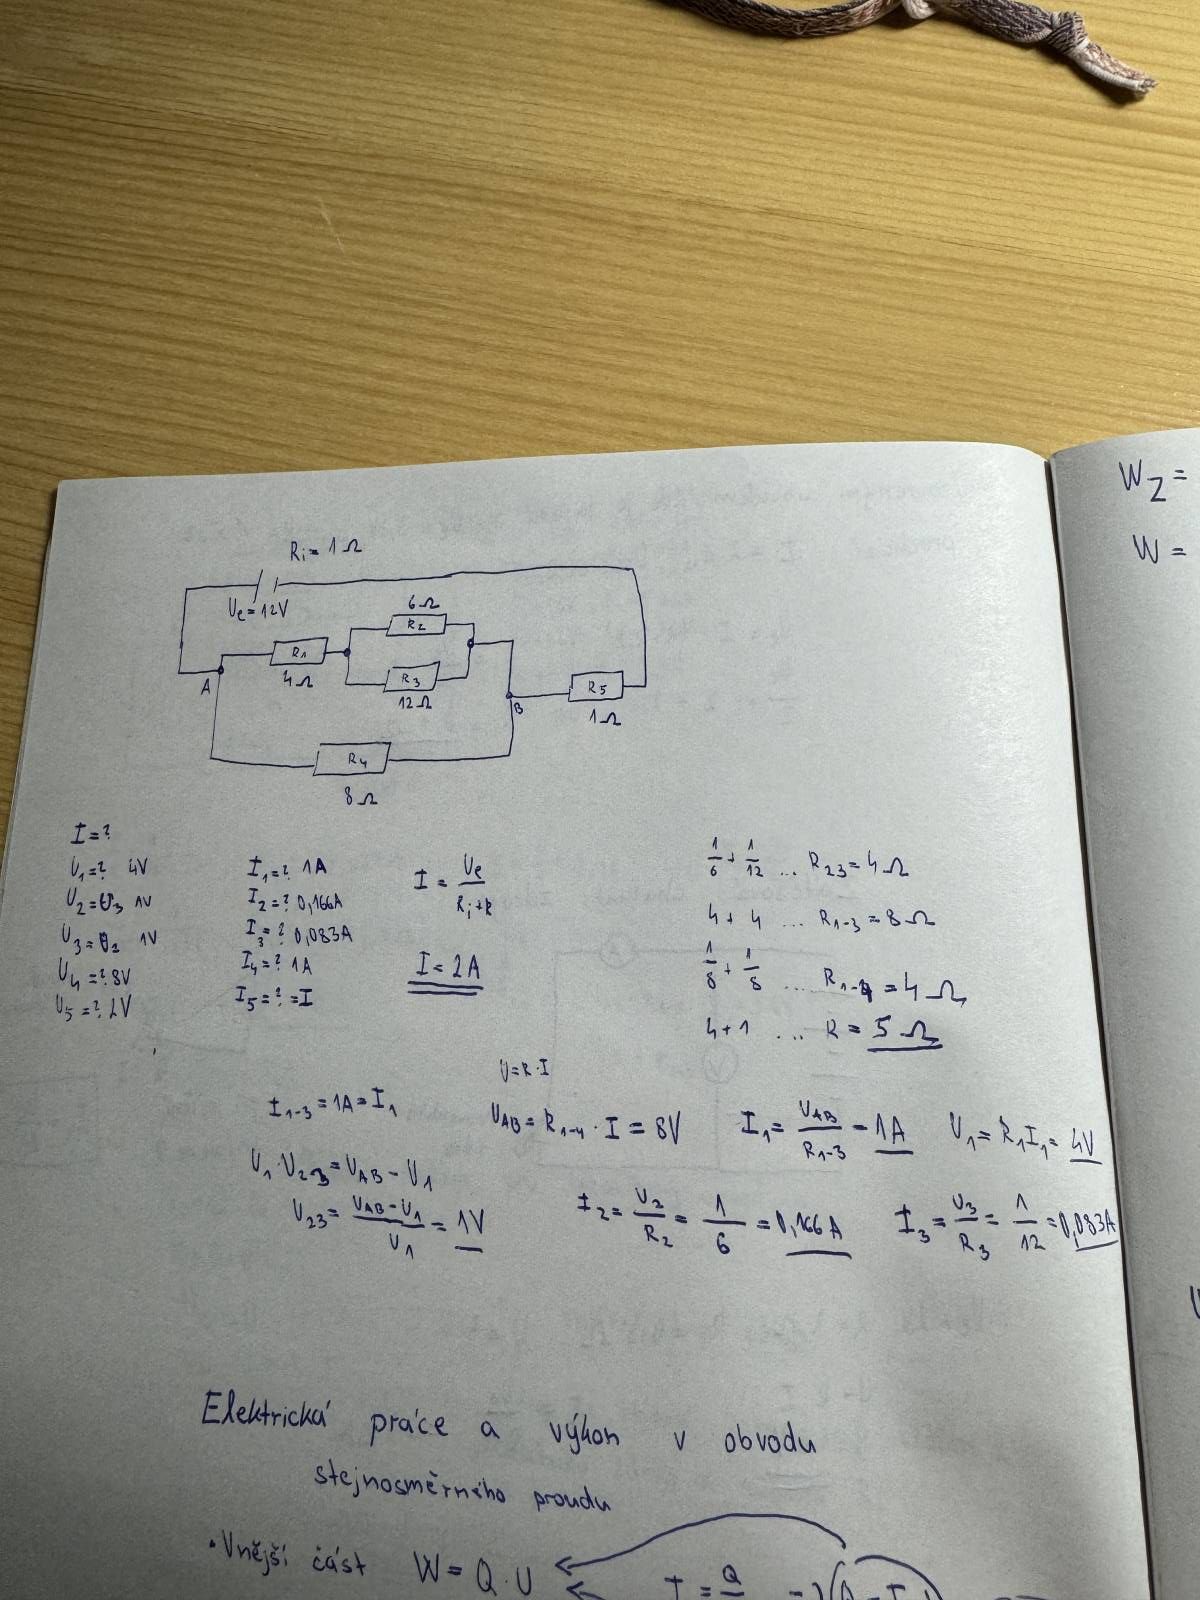 W_Z =
W =
R_i = 1 Ω
U_e = 12V
6 Ω
R_2
R_1
4 Ω
R_3
12 Ω
A
B
R_5
1 Ω
R_4
8 Ω
I = ?
U_1 = ? 4V
U_2 = U_3 1V
U_3 = U_2 1V
U_4 = ? 8V
U_5 = ? 2V
I_1 = ? 1A
I_2 = ? 0,166A
I_3 = ? 0,083A
I_4 = ? 1A
I_5 = ? = I
I = U_e / (R_i + R)
I = 2A
1/6 + 1/12 ... R_23 = 4 Ω
4 + 4 ... R_1-3 = 8 Ω
1/8 + 1/8 ... R_1-4 = 4 Ω
4 + 1 ... R = 5 Ω
U = R · I
I_1-3 = 1A = I_1
U_AB = R_1-4 · I = 8V
I_1 = U_AB / R_1-3 = 1A
U_1 = R_1 I_1 = 4V
U_1 · U_23 = U_AB - U_1
U_23 = (U_AB - U_1) / U_1 = 1V
I_2 = U_2 / R_2 = 1/6 = 0,166A
I_3 = U_3 / R_3 = 1/12 = 0,083A
Elektrická práce a výkon v obvodu
stejnosměrného proudu
• Vnější část W = Q · U
I = Q